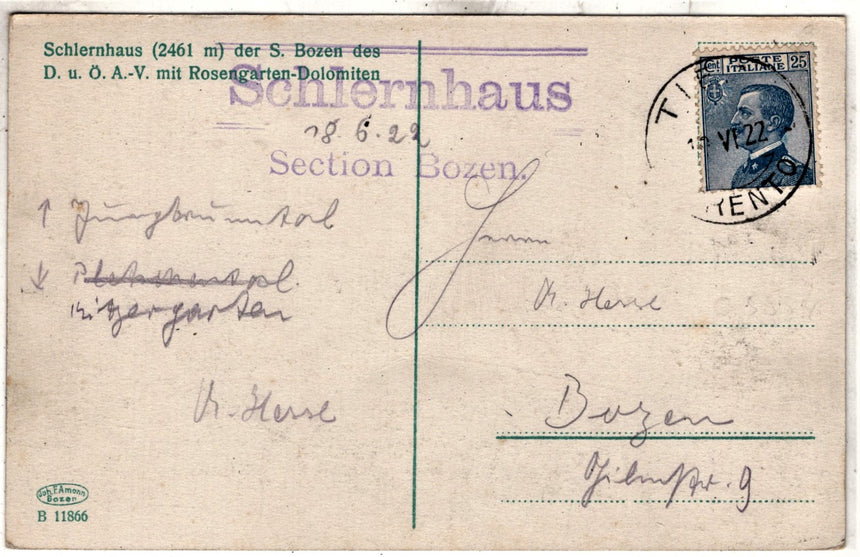 Schlernhaus (2461 m) der S. Bozen des
D. u. Ö. A.-V. mit Rosengarten-Dolomiten
Schlernhaus
18. 6. 22
Section Bozen.
POSTE
ITALIANE 25
TIE
VI 22
TRENTO
↑ Jungbrunntal
↓
Herrn
Hesse
Hesse
Bozen
9
Joh. F. Amonn
Bozen
B 11866